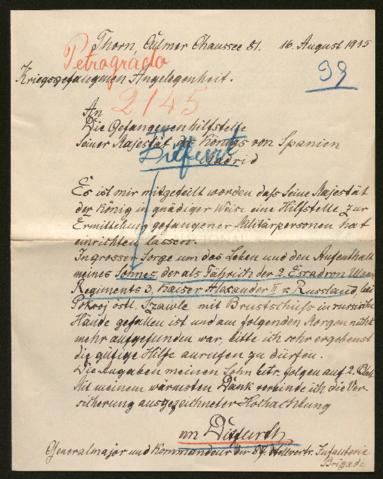 Thorn, Culmer Chaussee 81. 16. August 1915
Petrogrado
Kriegsgefangenen Angelegenheit.
99
2145
An
Die Gefangenenhilfstelle
Seiner Majestät des Königs von Spanien
Madrid
Ditfurth
Es ist mir mitgeteilt worden daß Seine Majestät
der König in gnädiger Weise eine Hilfstelle zur
Ermittelung gefangener Militärpersonen hat
einrichten lassen.
In grosser Sorge um das Leben und den Aufenthalt
meines Sohnes, der als Fähnrich der 3. Escadron Ulanen
Regiments 3, Kaiser Alexander II v. Russland, bei
Pokroj östl. Szawle mit Brustschuss in russische
Hände gefallen ist und am folgenden Morgen nicht
mehr aufgefunden war, bitte ich sehr ergebenst
die gütige Hilfe anrufen zu dürfen.
Die Angaben meinen Sohn betr. folgen auf 2. Blatt
Mit meinem wärmsten Dank verbinde ich die Ver-
sicherung ausgezeichneter Hochachtung
von Ditfurth
Generalmajor und Kommandeur der Stellvertr. Infanterie
Brigade